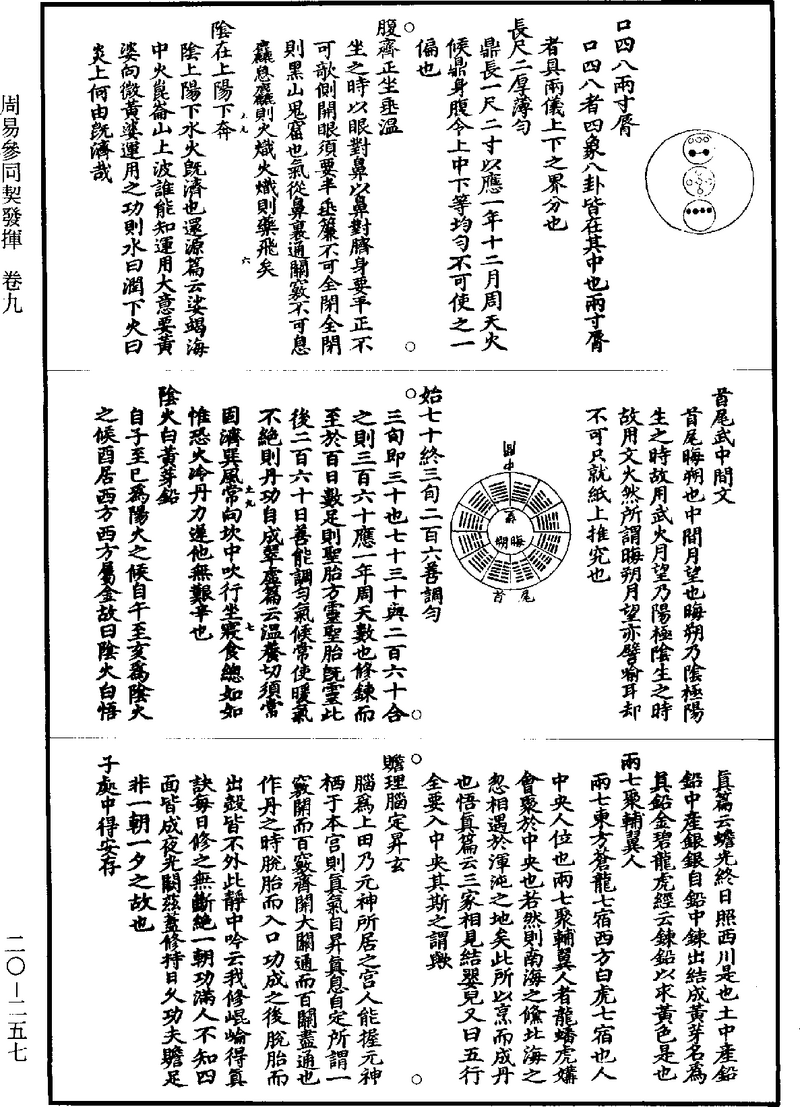 周易參同契發揮 卷九
二〇—二五七
口四八兩寸脣
口四八者四象八卦皆在其中也兩寸脣
者具兩儀上下之界分也
長尺二厚薄勻
鼎長一尺二寸以應一年十二月周天火
候鼎身腹令上中下等均勻不可使之一
偏也
腹齊正坐垂溫
坐之時以眼對鼻以鼻對臍身要平正不
可欹側開眼須要半垂簾不可全閉全閉
則黑山鬼窟也氣從鼻裏通關竅不可息
麤息麤則火熾火熾則藥飛矣
陰在上陽下奔
陰上陽下水火旣濟也還源篇云娑竭海
中火崑崙山上波誰能知運用大意要黃
婆向微黃婆運用之功則水曰潤下火曰
炎上何由旣濟哉
首尾武中間文
首尾晦朔也中間月望也晦朔乃陰極陽
生之時故用武火月望乃陽極陰生之時
故用文火然所謂晦朔月望亦譬喻耳却
不可只就紙上推究也
中間
晦朔
首尾
始七十終三旬二百六善調勻
三旬即三十也七十三十與二百六十合
之則三百六十應一年周天數也修鍊而
至於百日數足則聖胎方靈聖胎旣靈此
後二百六十日善能調勻氣候常使暖氣
不絕則丹功自成翠虛篇云溫養切須常
固濟巽風常向坎中吹行坐寢食總如如
惟恐火冷丹力遲他無艱辛也
陰火白黃芽鉛
自子至巳爲陽火之候自午至亥爲陰火
之候酉居西方西方屬金故曰陰火白悟
眞篇云蟾光終日照西川是也土中產鉛
鉛中產銀銀自鉛中鍊出結成黃芽名爲
眞鉛金碧龍虎經云鍊鉛以求黃色是也
兩七聚輔翼人
兩七東方蒼龍七宿西方白虎七宿也人
中央人位也兩七聚輔翼人者龍蟠虎媾
會聚於中央也若然則南海之儵北海之
忽相遇於渾沌之地矣此所以烹而成丹
也悟眞篇云三家相見結嬰兒又曰五行
全要入中央其斯之謂歟
贍理腦定昇玄
腦爲上田乃元神所居之宮人能握元神
栖于本宮則眞氣自昇眞息自定所謂一
竅開而百竅齊開大關通而百關盡通也
作丹之時脫胎而入口功成之後脫胎而
出殼皆不外此靜中吟云我修崐崘得眞
訣每日修之無斷絕一朝功滿人不知四
面皆成夜光闕茲蓋修持日久功夫贍足
非一朝一夕之故也
子處中得安存